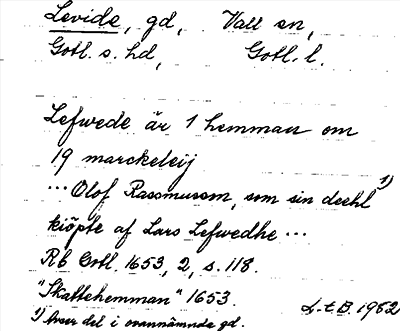 Levide, gd, Vall sn,
Gotl. s. hd, Gotl. l.
Lefwede är 1 hemman om
19 marckeleij
... Olof Rassmuson, som sin deehl 1)
kiöpte af Lars Lefwedhe ...
Rb Gotl. 1653, 2, s. 118.
"Skattehemman" 1653.
L-t B. 1982
1) hwar del i ovannämnde gd.